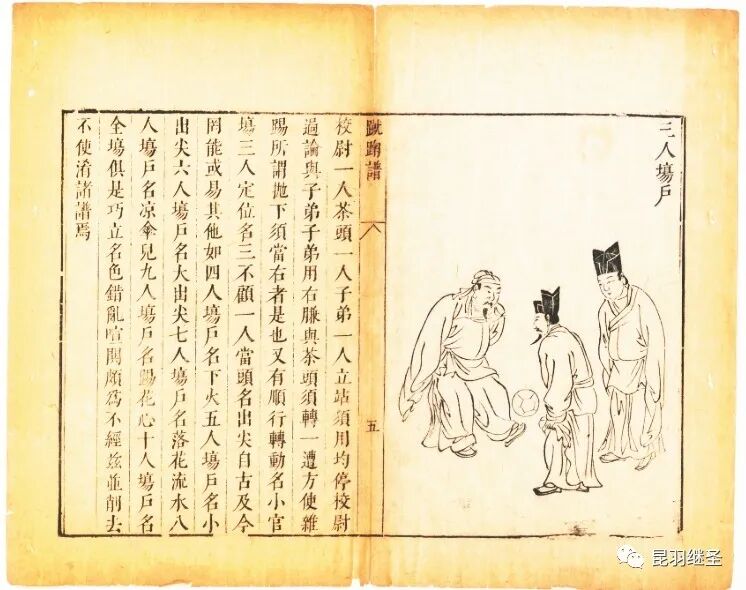 三人塲戶
蹴踘譜
五
校尉一人茶頭一人子弟一人立站須用均停校尉
過論與子弟子弟用右膁與茶頭須轉一遭方使雜
踢所謂拋下須當右者是也又有順行轉動名小官
塲三人定位名三不顧一人當頭名出尖自古及今
罔能或易其他如四人塲戶名下火五人塲戶名小
出尖六人塲戶名大出尖七人塲戶名落花流水八
人塲戶名凉傘兒九人塲戶名踢花心十人塲戶名
全塲俱是巧立名色錯亂喧鬨頗為不經茲並削去
不使淆諸譜焉
昆羽继圣